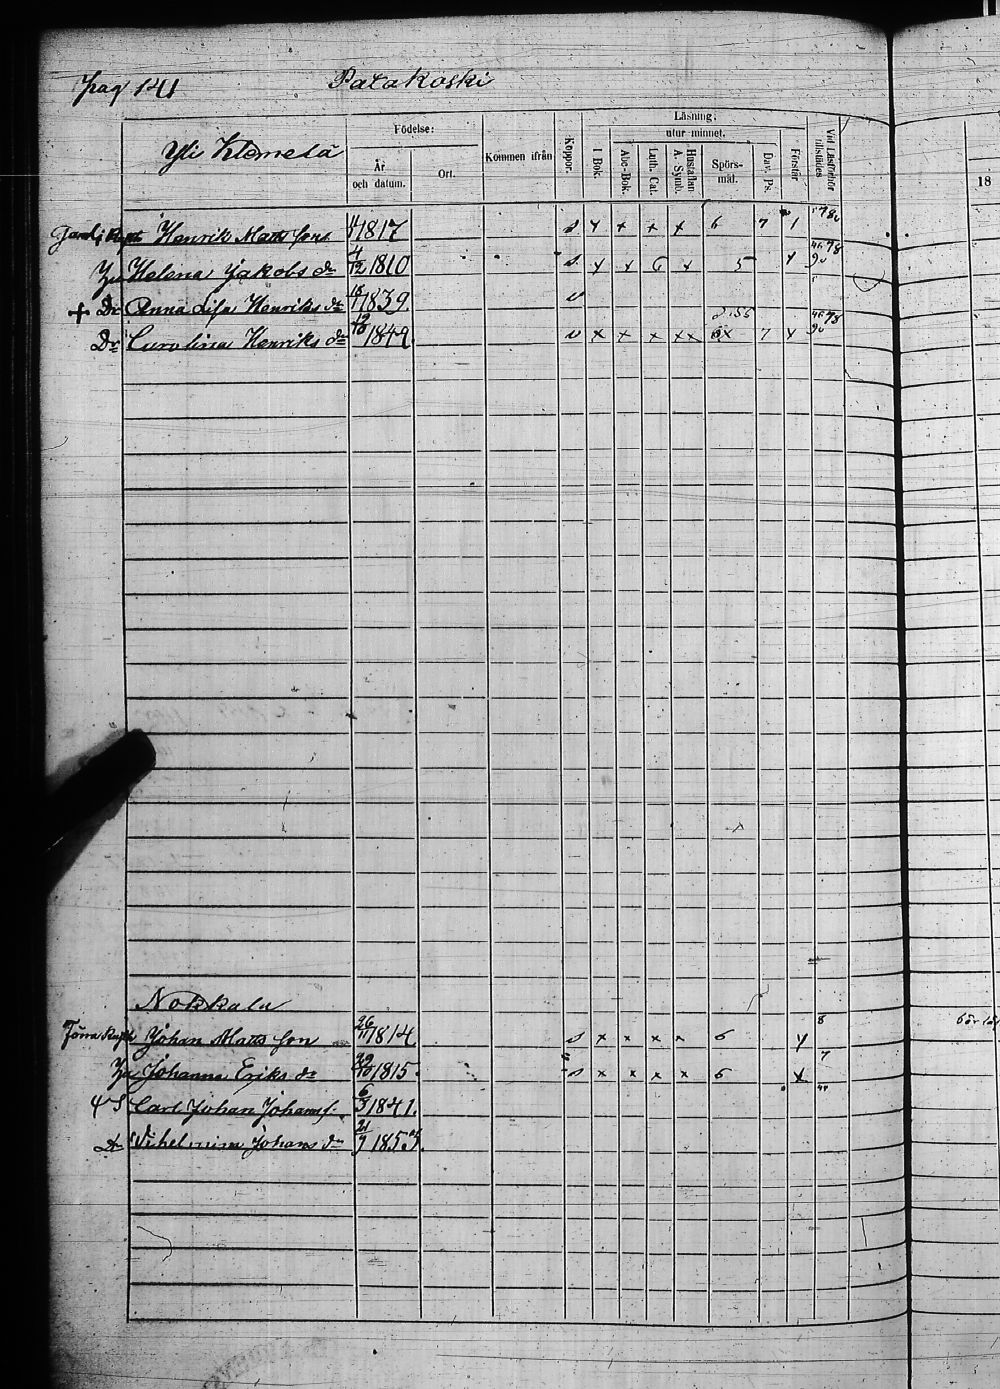 pag 141 Patakoski
Yli Klemetä
Födelse:
År och datum.
Ort.
Kommen ifrån
Koppor.
Läsning;
utur minnet.
I Bok.
Abc-Bok.
Luth. Cat.
Hustaflan A. Symb.
Spörs-mål.
Dav. Ps.
Förstår
Vid Läseförhör tillstädes
18
Henrik Matts son 1817 6 7
Helena Jakobs dr 4/12 1810 x x 6 x 5
+ Dr Anna Lisa Henriks dr 1839.
Dr Carolina Henriks dr 1849. x x x xx 7 x
Nokkala
Johan Matts son 26/11 1814 x x x x 6 8
Johanna Eriks dr 29/10 1815 x x x x 6 x 7
Carl Johan Johans s. 6/3 1841.
Dr Vihelmina Johans dr 21/9 1853.